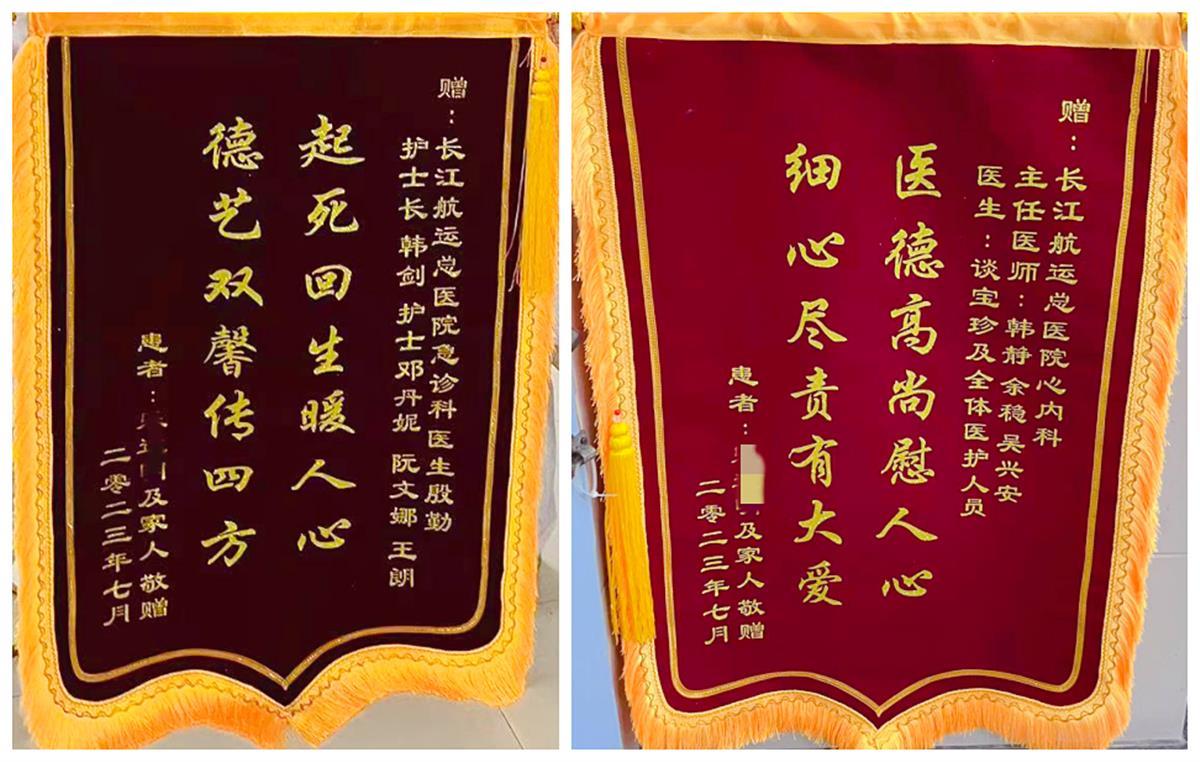 赠：长江航运总医院急诊科医生殷勤
护士长 韩剑 护士邓丹妮 阮文娜 王朗
起死回生暖人心
德艺双馨传四方
患者：
及家人 敬赠
二零二三年七月
赠：长江航运总医院心内科
主任医师：韩静 余稳 吴兴安
医生：谈宝珍及全体医护人员
医德高尚慰人心
细心尽责有大爱
患者：
及家人 敬赠
二零二三年七月